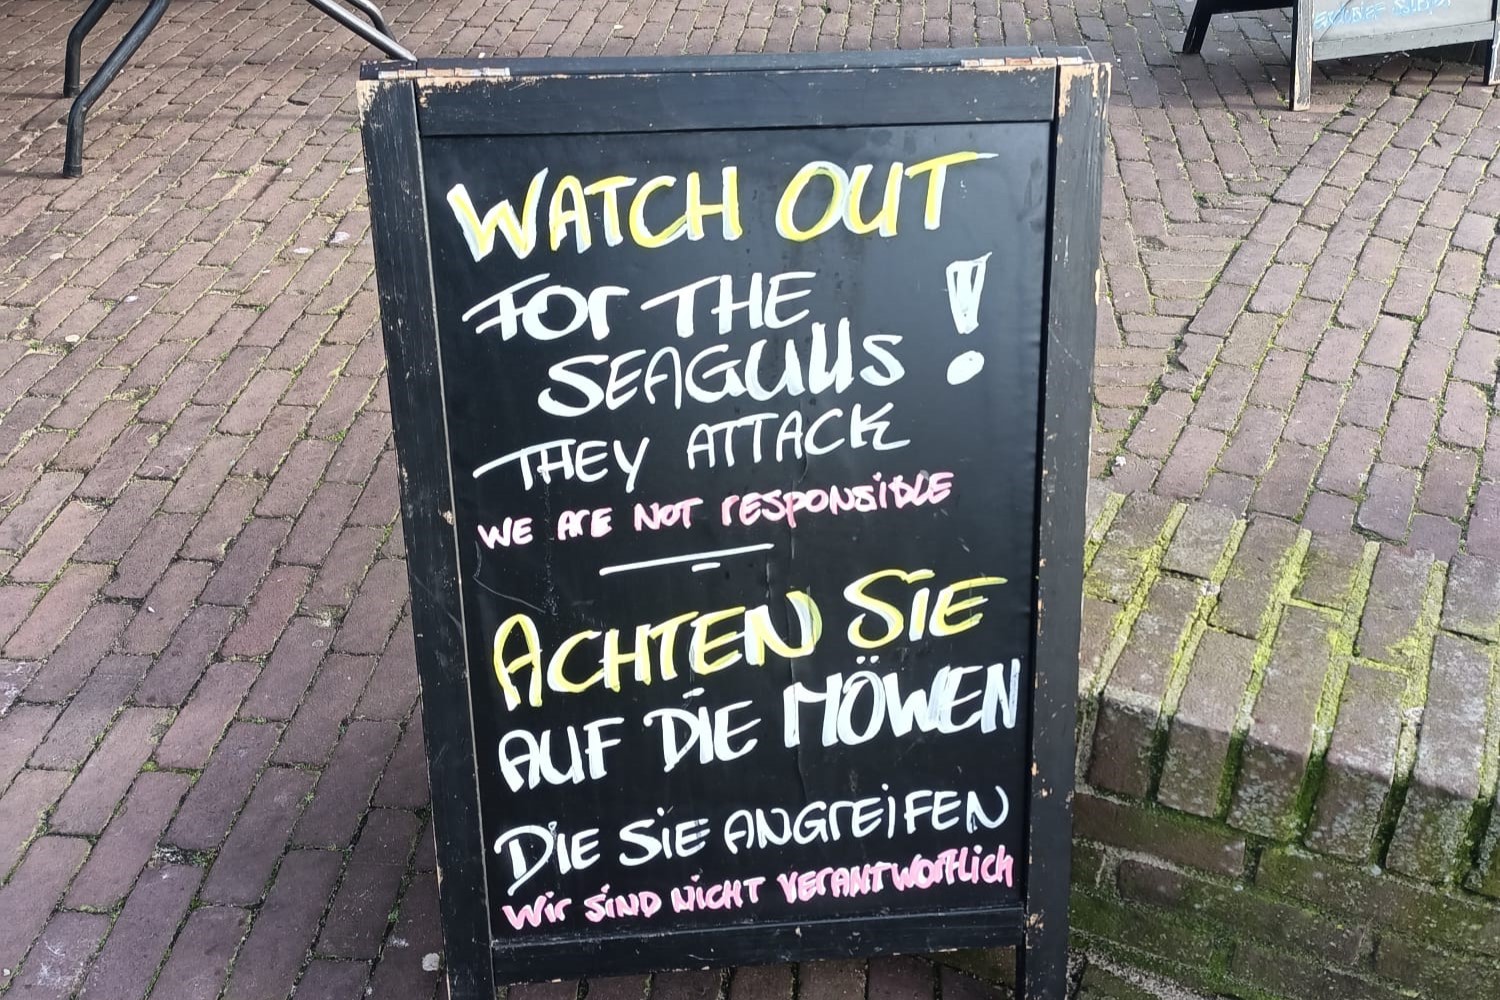 WATCH OUT
FOr THE !
SEAGULLS
THEY ATTACK
WE ArE NOT rESPONSiBLE
ACHTEN SiE
AUF DiE MÖWEN
DiE SiE ANGrEiFEN
Wir SiND NiCHT VErANTWOrTLich